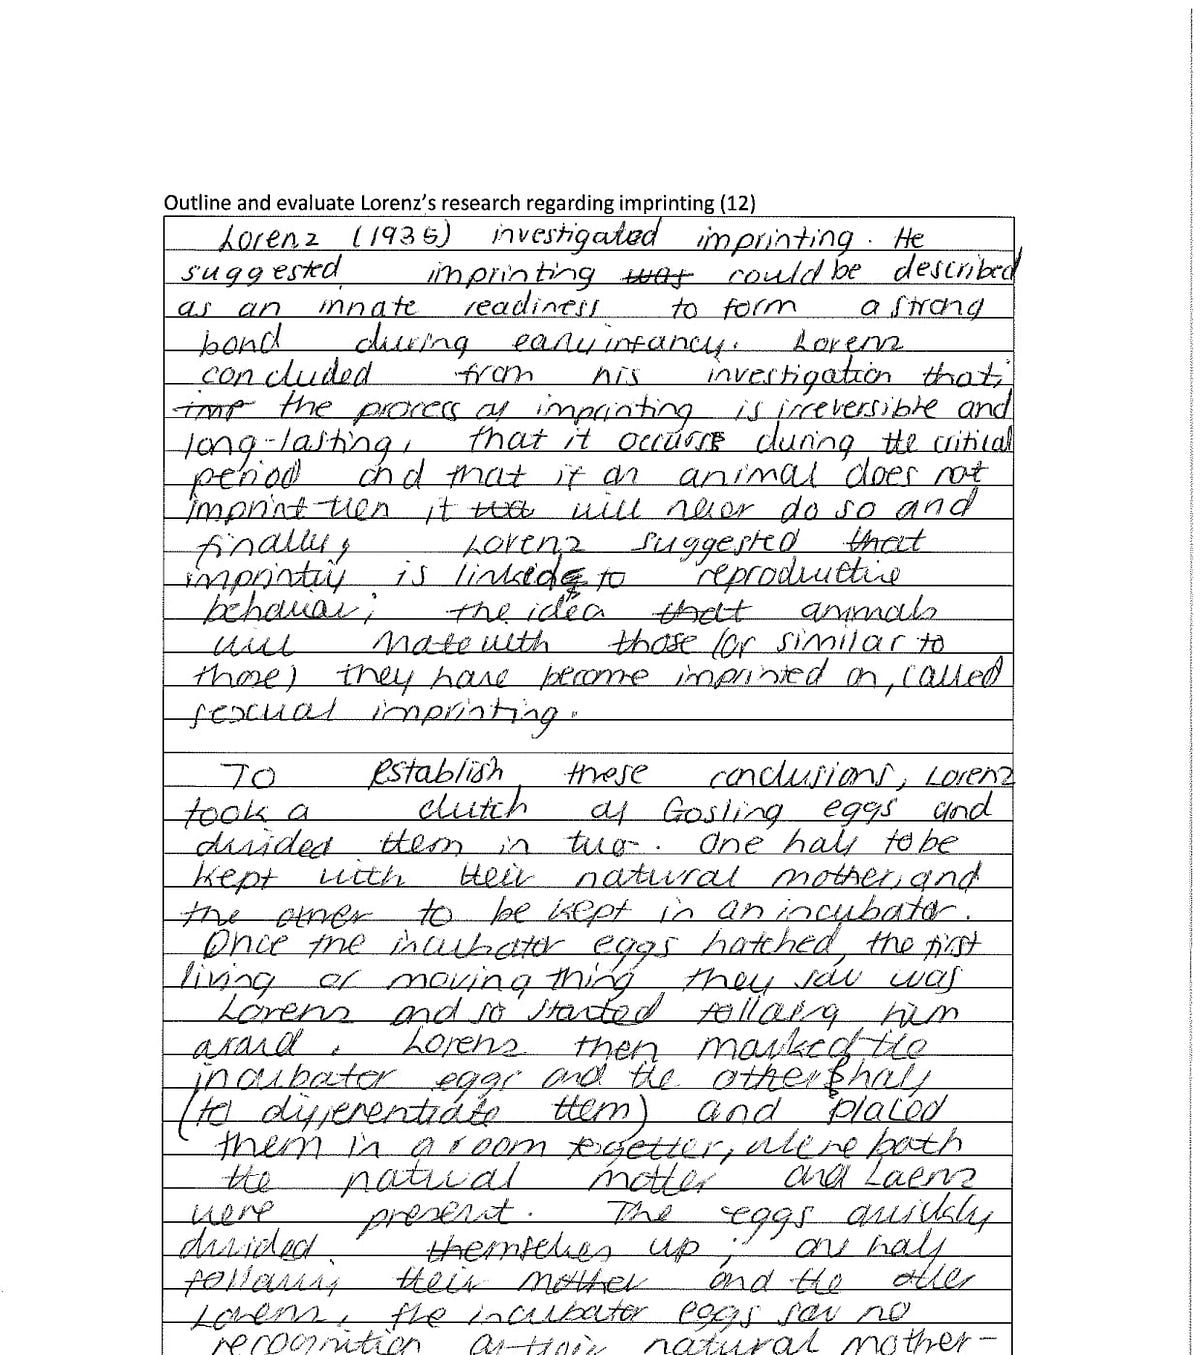 Outline and evaluate Lorenz's research regarding imprinting (12)
Lorenz (1935) investigated imprinting. He
suggested imprinting was could be described
as an innate readiness to form a strong
bond during early infancy. Lorenz
concluded from his investigation that;
imp the process of imprinting is irreversible and
long-lasting, that it occurs during the critical
period and that if an animal does not
imprint then it will never do so and
finally, Lorenz suggested that
imprinting is linked to reproductive
behaviour; the idea that animals
will mate with those (or similar to
those) they have become imprinted on, called
sexual imprinting.
To establish these conclusions, Lorenz
took a clutch of Gosling eggs and
divided them in two. One half to be
kept with their natural mother, and
the other to be kept in an incubator.
Once the incubator eggs hatched, the first
living or moving thing they saw was
Lorenz and so started following him
around. Lorenz then marked the
incubator eggs and the other half
(to differentiate them) and placed
them in a room together, where both
the natural mother and Lorenz
were present. The eggs quickly
divided themselves up; one half
following their mother and the other
Lorenz, the incubator eggs saw no
recognition of their natural mother-